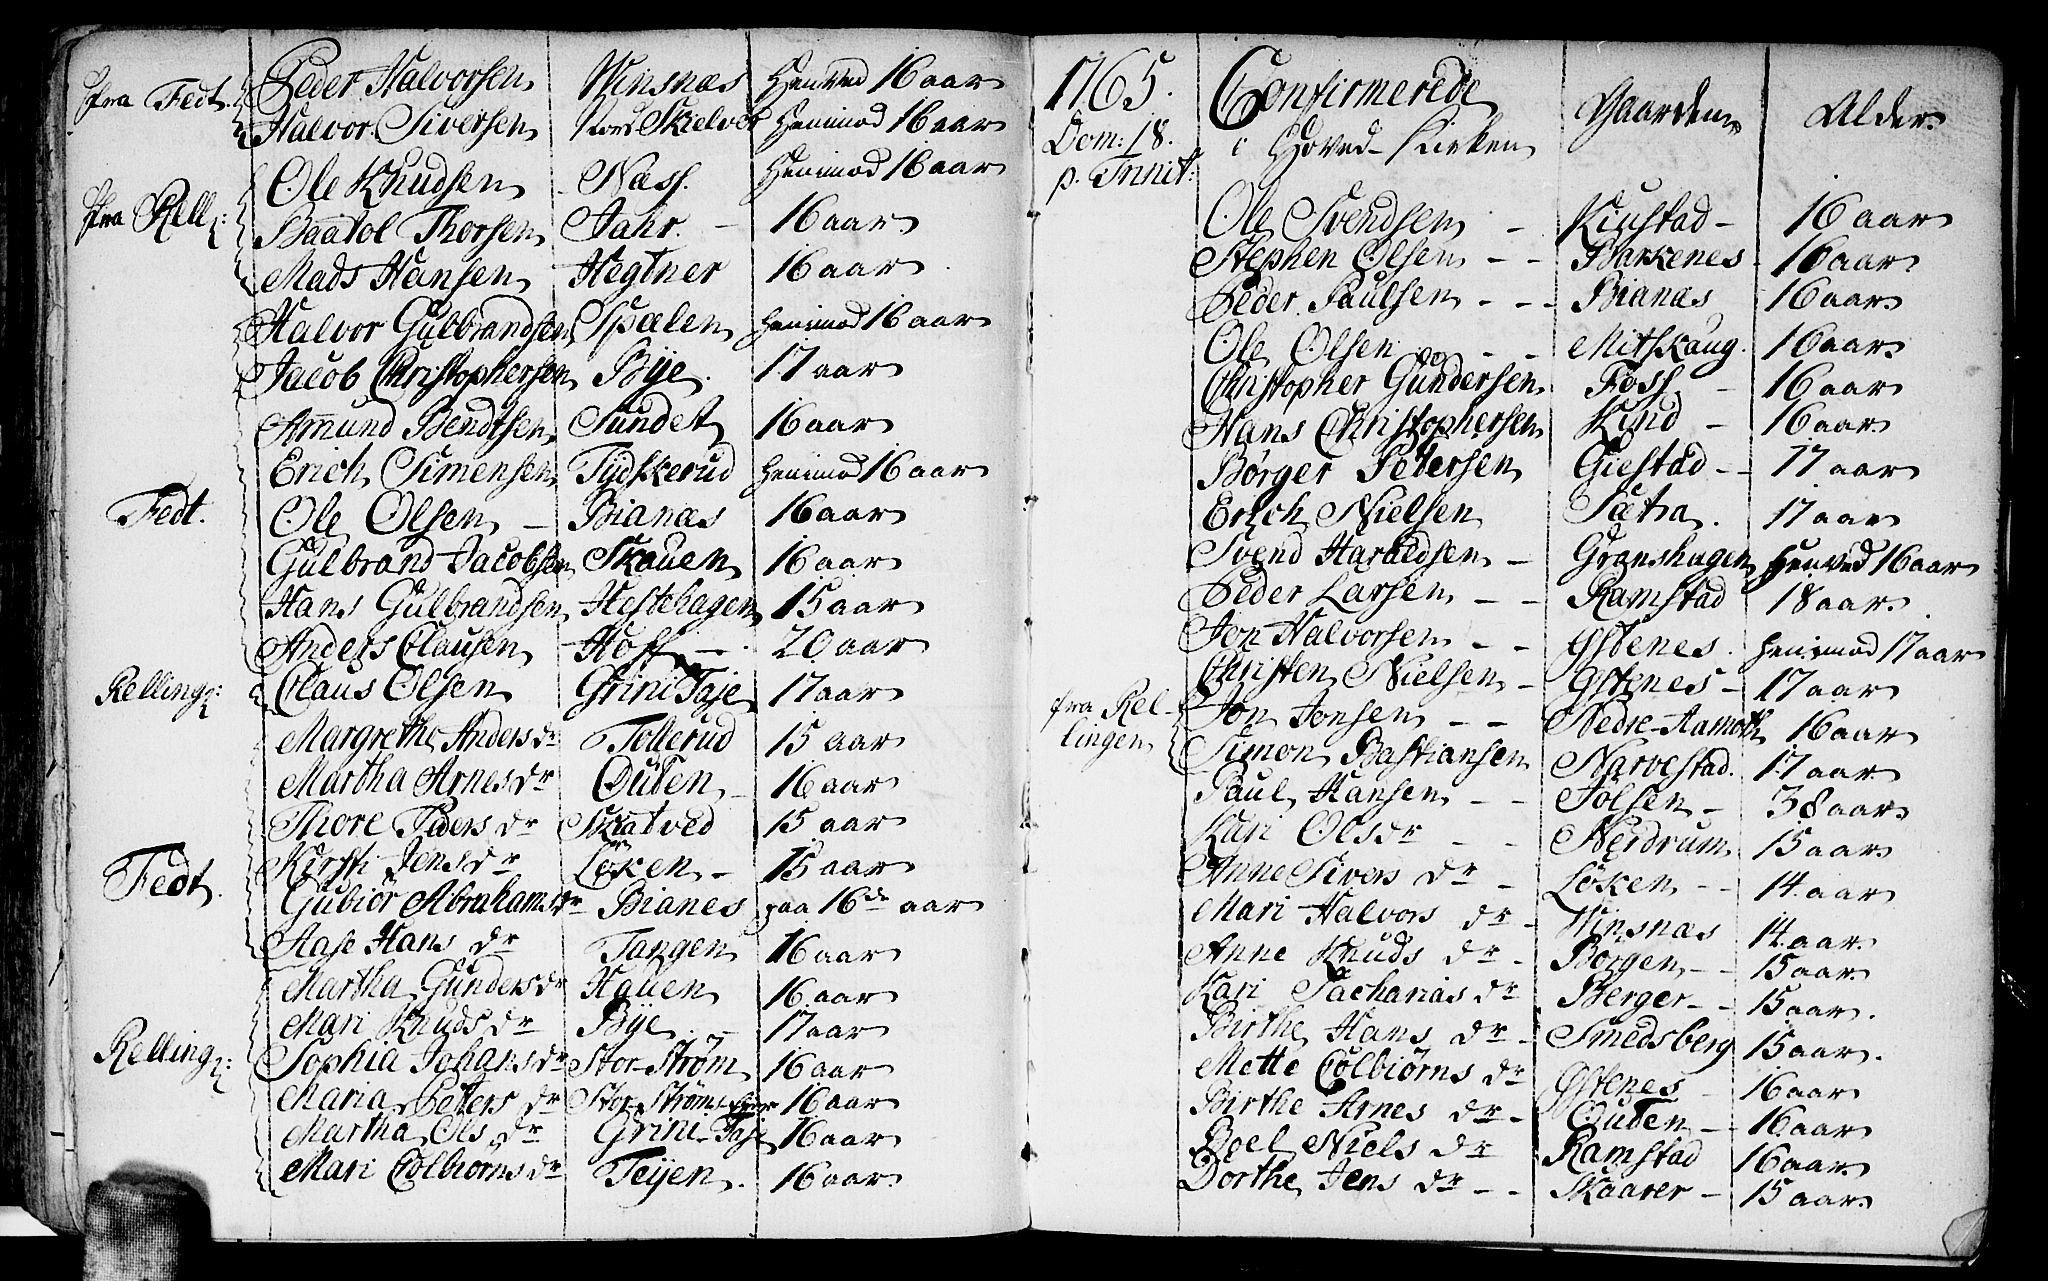 fra Fedt. Peder Halvorsen Winsnæs Henved 16 aar
Halvor Siversen Nord Skielver Henimod 16 aar
Ole Knudsen Næss. Henimod 16 aar
fra Rell: Baatol Thorsen Jahr. - 16 aar
Mads Hansen Hegtner 16 aar
Halvor Gulbrandsen Spælen henimod 16 aar
Jacob Christophersen Bye. 17 aar
Amund Bendtsen Sundet 16 aar
Erich Simensen Tydskerud henimod 16 aar
Fedt. Ole Olsen - Bianæs 16 aar
Gulbrand Jacobsen Skauen 16 aar
Hans Gulbrandsen Hestehagen 15 aar
Anders Clausen Hoff - 20 aar
Relling: Claus Olsen Grini Taje 17 aar
Margrethe Anders dr Tollerud 15 aar
Martha Arnes dr Outen 16 aar
Thore Peders dr Skatved 15 aar
Kirsti Jens dr Løken - 15 aar
Fedt. Gubiör Abrahams dr Bianes paa 16de aar
Aase Hans dr Tangen 16 aar
Martha Gunders dr Hauen 16 aar
Mari Knuds dr Bye. - 17 aar
Relling: Sophia Johans dr Stor-Strøm 16 aar
Maria Peters dr Stor Strøms 16 aar
Martha Ols dr Grini-Taje 16 aar
Mari Colbiørns dr Teijen. 16 aar
1765. Confirmerede Gaardene Alder.
Dom: 18. i Hoved-Kirken
p. Trinit:
Ole Svendsen - Kiustad - 16 aar
Stephen Olsen - - Barkenes 16 aar
Peder Paulsen - - - Bianæs 16 aar
Ole Olsen - - Mitskaug. 16 aar
Christopher Gundersen Foss - 16 aar
Hans Christophersen Kind - 16 aar
Børger Petersen Giestad - - 17 aar
Erich Nielsen Sætra. 17 aar
Svend Haraldsen - Granshagen Henved 16 aar
Peder Larsen - - Ramstad 18 aar.
Jon Halvorsen - - Ystenes. henimod 17 aar
Christen Nielsen - Ystenes - 17 aar
fra Rel- Jon Jonsen - - Nedre-Aamoth 16 aar
lingen Simon Bastiansen Narvestad. 17 aar
Paul Hansen - - Tolsen - 38 aar
Kari Ols dr - - Nerdrum 15 aar
Anne Sivers dr - Løken - - 14 aar
Mari Halvors dr - Winsnæs 14 aar.
Anne Knuds dr - Børgen - - 15 aar
Kari Zacharias dr Berger - - 15 aar.
Birthe Hans dr - Smedsberg 15 aar.
Mette Colbiørns dr Ystenes - 16 aar
Birthe Arnes dr - Outen - - 16 aar
Boel Niels dr Ramstad 16 aar.
Dorthe Jens dr - - Skaarer - 15 aar.